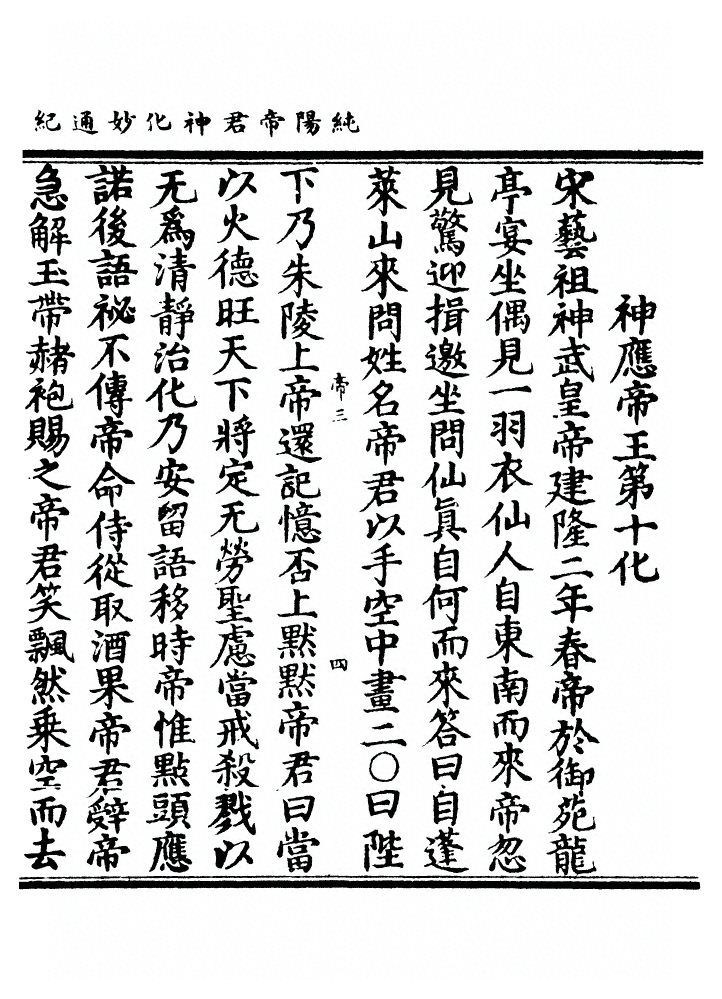 純陽帝君神化妙通紀
神應帝王第十化
宋藝祖神武皇帝建隆二年春帝於御苑龍
亭宴坐偶見一羽衣仙人自東南而來帝忽
見驚迎揖邀坐問仙眞自何而來答曰自蓬
萊山來問姓名帝君以手空中畫二〇曰陛
帝三
四
下乃朱陵上帝還記憶否上默默帝君曰當
以火德旺天下將定无勞聖慮當戒殺戮以
无爲清靜治化乃安留語移時帝惟點頭應
諾後語祕不傳帝命侍從取酒果帝君辭帝
急解玉帶赭袍賜之帝君笑飄然乘空而去